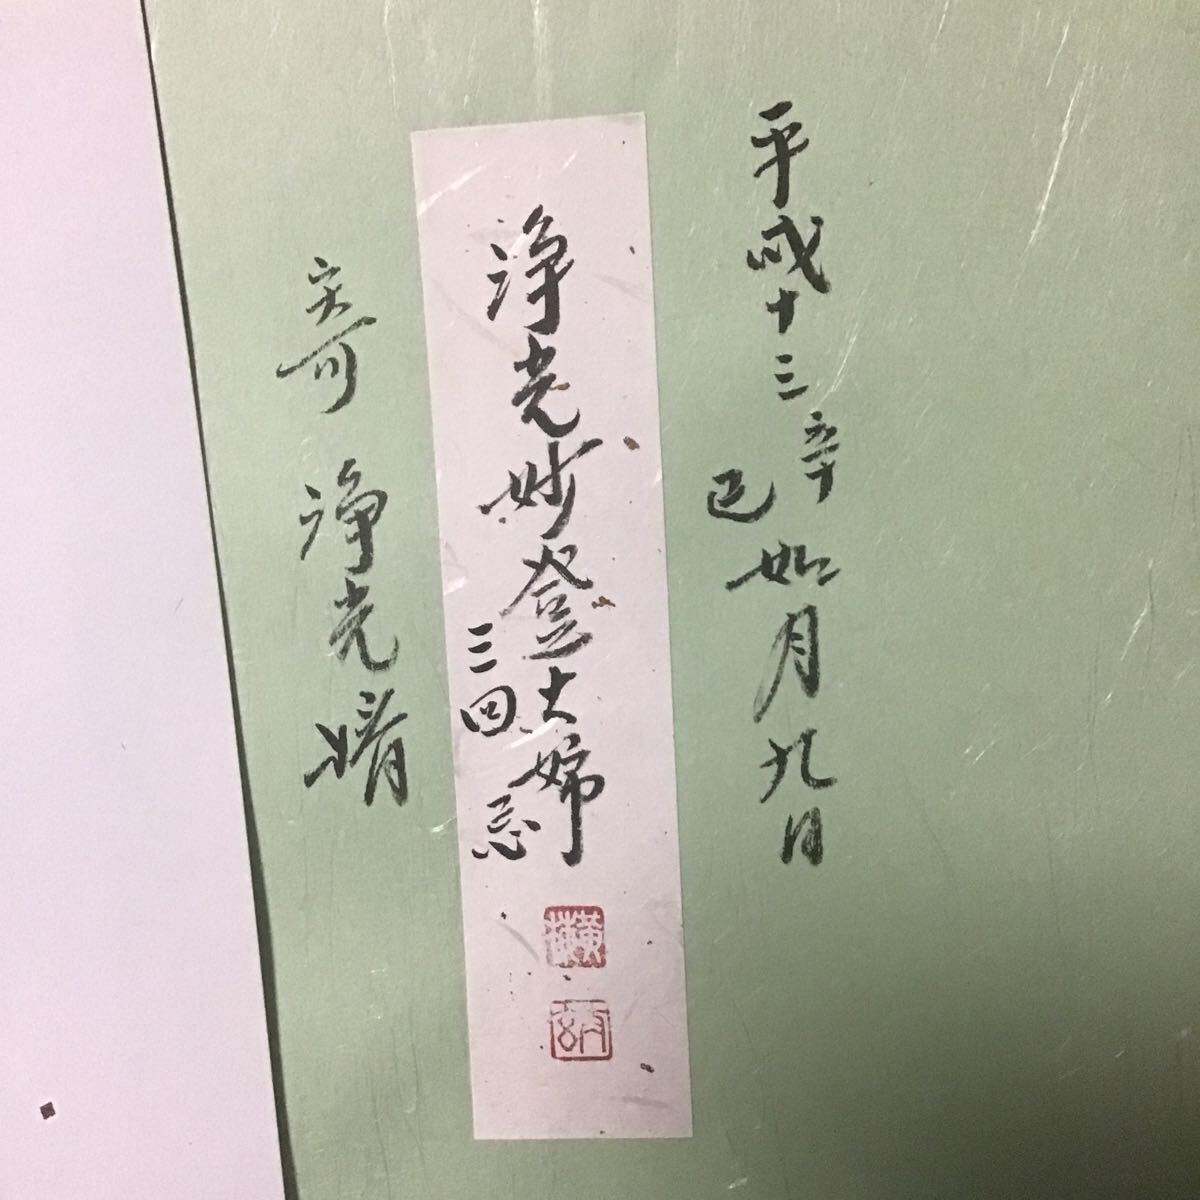 平成十三辛巳如月九日
浄光妙登大姉
三回忌
寄 浄光